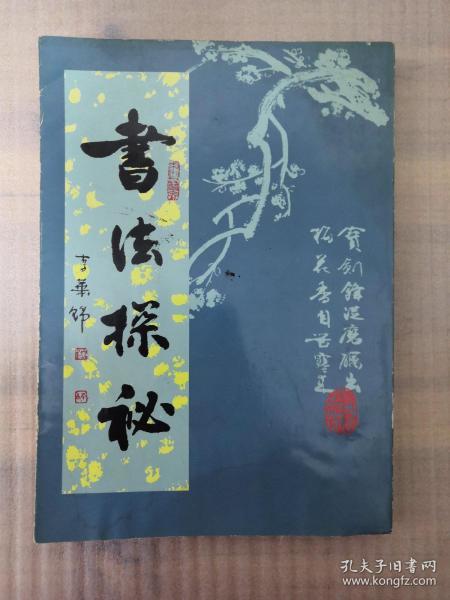 書法探秘
寶劍鋒從磨礪出
梅花香自苦寒來
孔夫子旧书网
www.kongfz.com